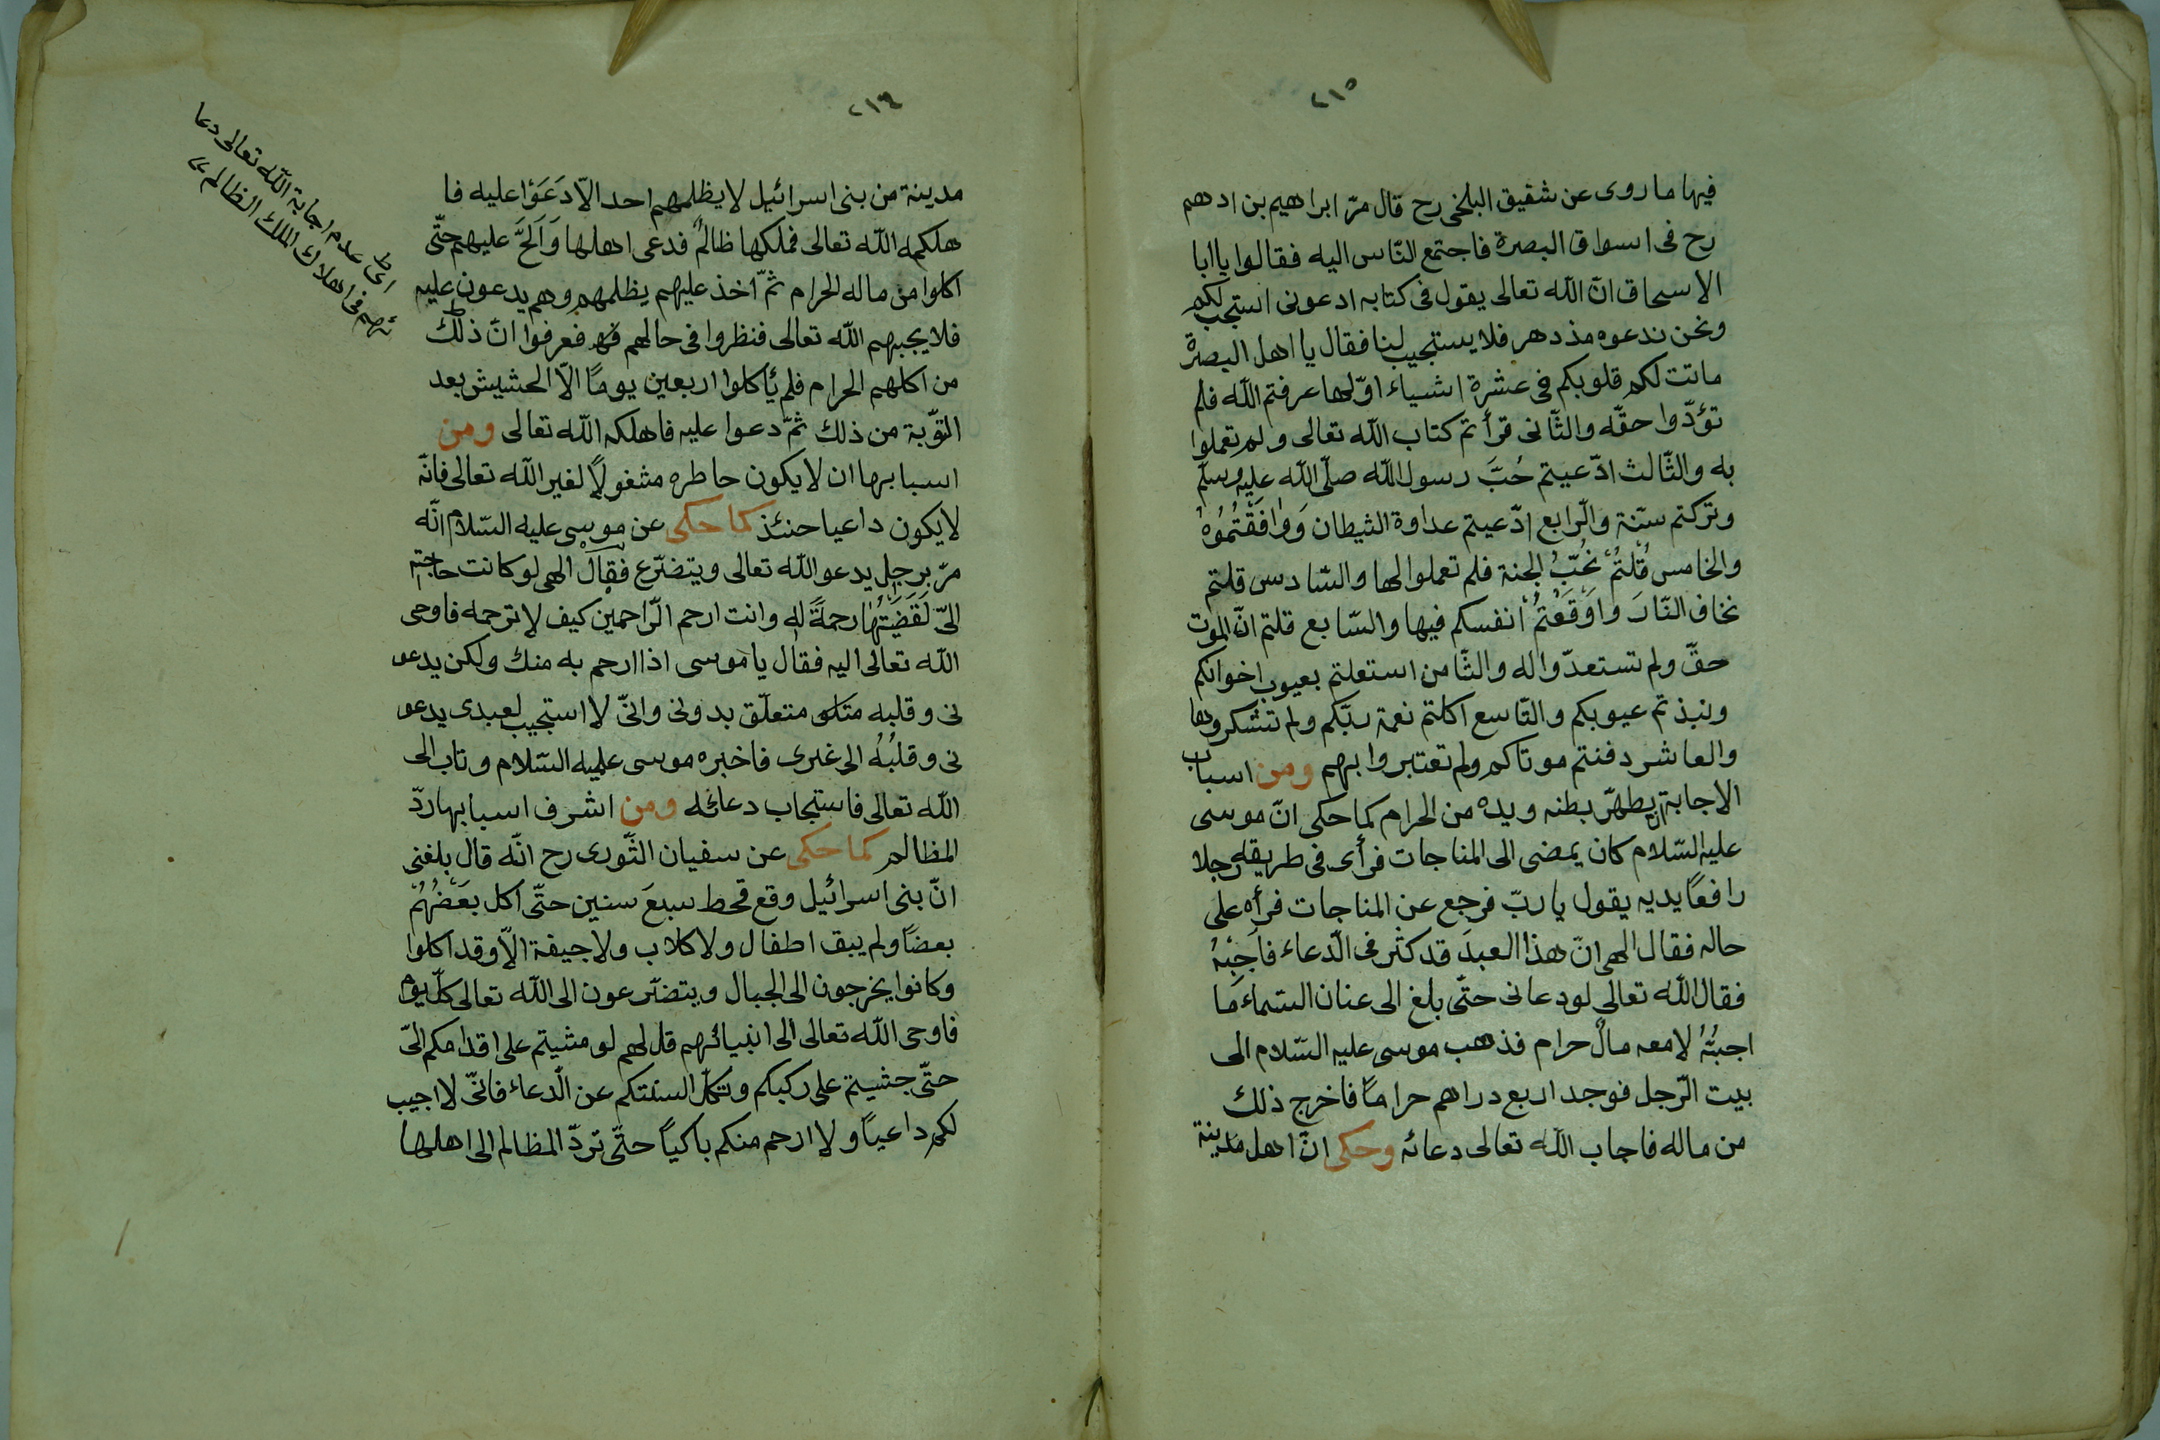 ٢١٥
فيها ما روى عن شقيق البلخى رح قال مرّ ابراهيم بن ادهم
رح فى اسواق البصرة فاجتمع النّاس اليه فقالوا يا ابا
الاسحاق انّ الله تعالى يقول فى كتابه ادعونى استجب لكم
ونحن ندعوه مذ دهر فلا يستجيب لنا فقال يا اهل البصرة
ماتت لكم قلوبكم فى عشرة اشياء اوّلها عرفتم الله فلم
تؤدّوا حقّه والثّانى قرأتم كتاب الله تعالى ولم تعملوا
به والثّالث ادّعيتم حُبَّ رسول الله صلّى الله عليه وسلّم
وتركتم سنّته والرّابع ادّعيتم عداوة الشيطان وَوٰافَقْتُمُوهُ
والخامس قُلتُمْ نُحُبّ الجنة فلم تعملوا لها والسّادس قلتم
نخاف النّارَ واَوْقَعْتُمْ انفسكم فيها والسّابع قلتم انّ الموت
حقّ ولم تستعدّوا له والثّامن استعلتم بعيوب اخوانكم
ونبذتم عيوبكم والتّاسع اكلتم نعمة ربّكم ولم تشكروها
والعاشر دفنتم موتاكم ولم تعتبروا بهم ومن اسباب
الاجابة ان يطهّر بطنه ويده من الحرام كما حكى انّ موسى
عليه السّلام كان يمضى الى المناجات فرأى فى طريقه رجلا
رافعًا يديه يقول يا ربّ فرجع عن المناجات فرأه على
حاله فقال الهى انّ هذا العبدَ قد كثر فى الدّعاء فاَجِبْهُ
فقال الله تعالى لو دعانى حتّى بلغ الى عنان السّماء مَا
اجبتُهُ لا معه مالٌ حرام فذهب موسى عليه السّلام الى
بيت الرّجل فوجد اربع دراهم حرامًا فاخرج ذلك
من ماله فاجاب الله تعالى دعائه وحكى انّ اهل مدينة
٢١٦
مدينة من بنى اسرائيل لا يظلمهم احد الاّ دَعَوْا عليه فا
هلكهه الله تعالى فملكها ظالمٌ فدعى اهلها وَاَلَحَّ عليهم حتّى
اكلوا من ماله الحرام ثمّ اخذ عليهم يظلمهم وهم يدعون عليه
فلا يجبهم الله تعالى فنظروا فى حالهم فعرفوا انّ ذلك
من اكلهم الحرام فلم يأكلوا اربعين يومًا الاّ الحشيش بعد
التّوبة من ذلك ثمّ دعوا عليه فاهلكه الله تعالى ومن
اسبابها ان لا يكون حاطره مشغولاً لغير الله تعالى فانّه
لا يكون داعيا حنئذ كما حكى عن موسى عليه السّلام انّه
مرّ برجل يدعو الله تعالى ويتضرّع فقال الهى لو كانت حاجته
الىّ لَقَضَيْتُهٰا رحمةً له وانت ارحم الرّاحمين كيف لا ترحمه فاوحى
الله تعالى اليه فقال يا موسى اذا ارحم به منك ولكن يدعو
نى وقلبه متعلّق بدونى وانّى لا استجيب لعبدى يدعو
نى وقلبُهُ الى غيرى فاخبره موسى عليه السّلام وتاب الى
الله تعالى فاستجاب دعائه ومن اشرف اسبابها ردّ
المظالم كما حكى عن سفيان الثّورى رح انّه قال بلغنى
انّ بنى اسرائيل وقع قحط سبعَ سنين حتّى اكل بعَضُهُمْ
بعضاً ولم يبق اطفال ولا كلاب ولا جيفة الاّ وقد اكلوا
وكانوا يخرجون الى الجبال ويتضرّعون الى الله تعالى كلّ يوم
فاوحى الله تعالى الى انبيائهم قل لهم لو مشيتم على اقدامكم الىّ
حتّى جثيتم على ركبكم وتكلّ السنتكم عن الدّعاء فانّى لا اجيب
لكم داعياً ولا ارحم منكم باكياً حتّى تردّ المظالم الى اهلها
اى عدم اجابة الله تعالى دعا
ئهم فى اهلاك الملك الظالم